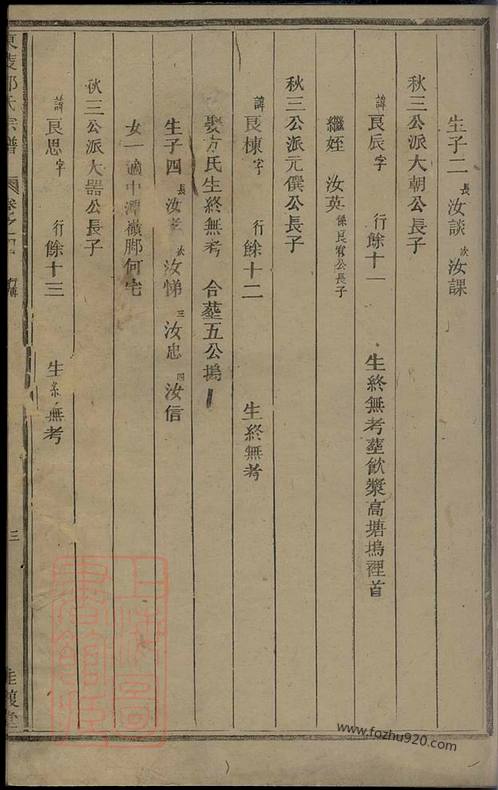 生子二 長 汝談 次 汝課
秋三公派大朝公長子
諱 良辰 字 行餘十一 生終無考塟飲漿高塘塢裡首
繼姪 汝英 係良宥公長子
秋三公派元僎公長子
諱 良棟 字 行餘十二 生終無考
娶方氏生終無考 合塟五公塢
生子四 長 汝孝 次 汝悌 三 汝忠 四 汝信
女一適中潭嶺脚何宅
秋三公派大器公長子
諱 良思 字 行餘十三 生終無考
氏宗譜 卷之 行傳 三
上海圖書館藏
www.fozhu920.com